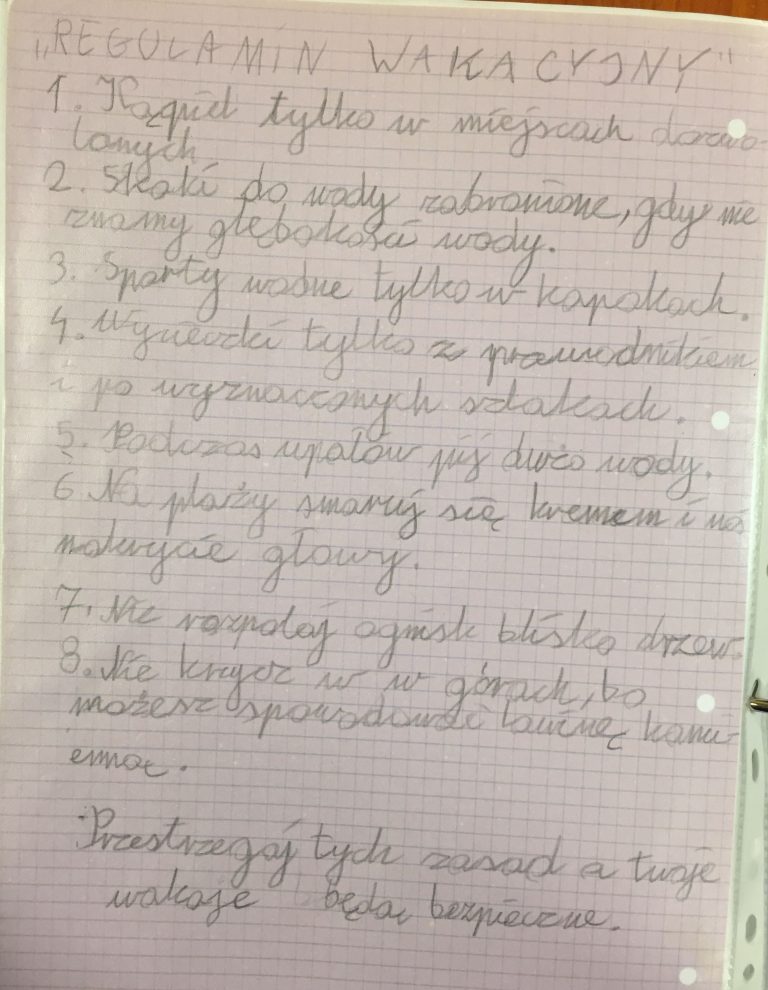 „REGULAMIN WAKACYJNY"
1. Kąpiel tylko w miejscach dozwo-
lonych
2. Skoki do wody zabronione, gdy nie
znamy głębokości wody.
3. Sporty wodne tylko w kapokach.
4. Wycieczki tylko z przewodnikiem
i po wyznaczonych szlakach.
5. Podczas upałów pij dużo wody.
6 Na plaży smaruj się kremem i noś
nakrycie głowy.
7. Nie rozpalaj ognisk blisko drzew.
8. Nie krzycz w w górach, bo
możesz spowodować lawinę kami-
enną.
Przestrzegaj tych zasad a twoje
wakacje będą bezpieczne.